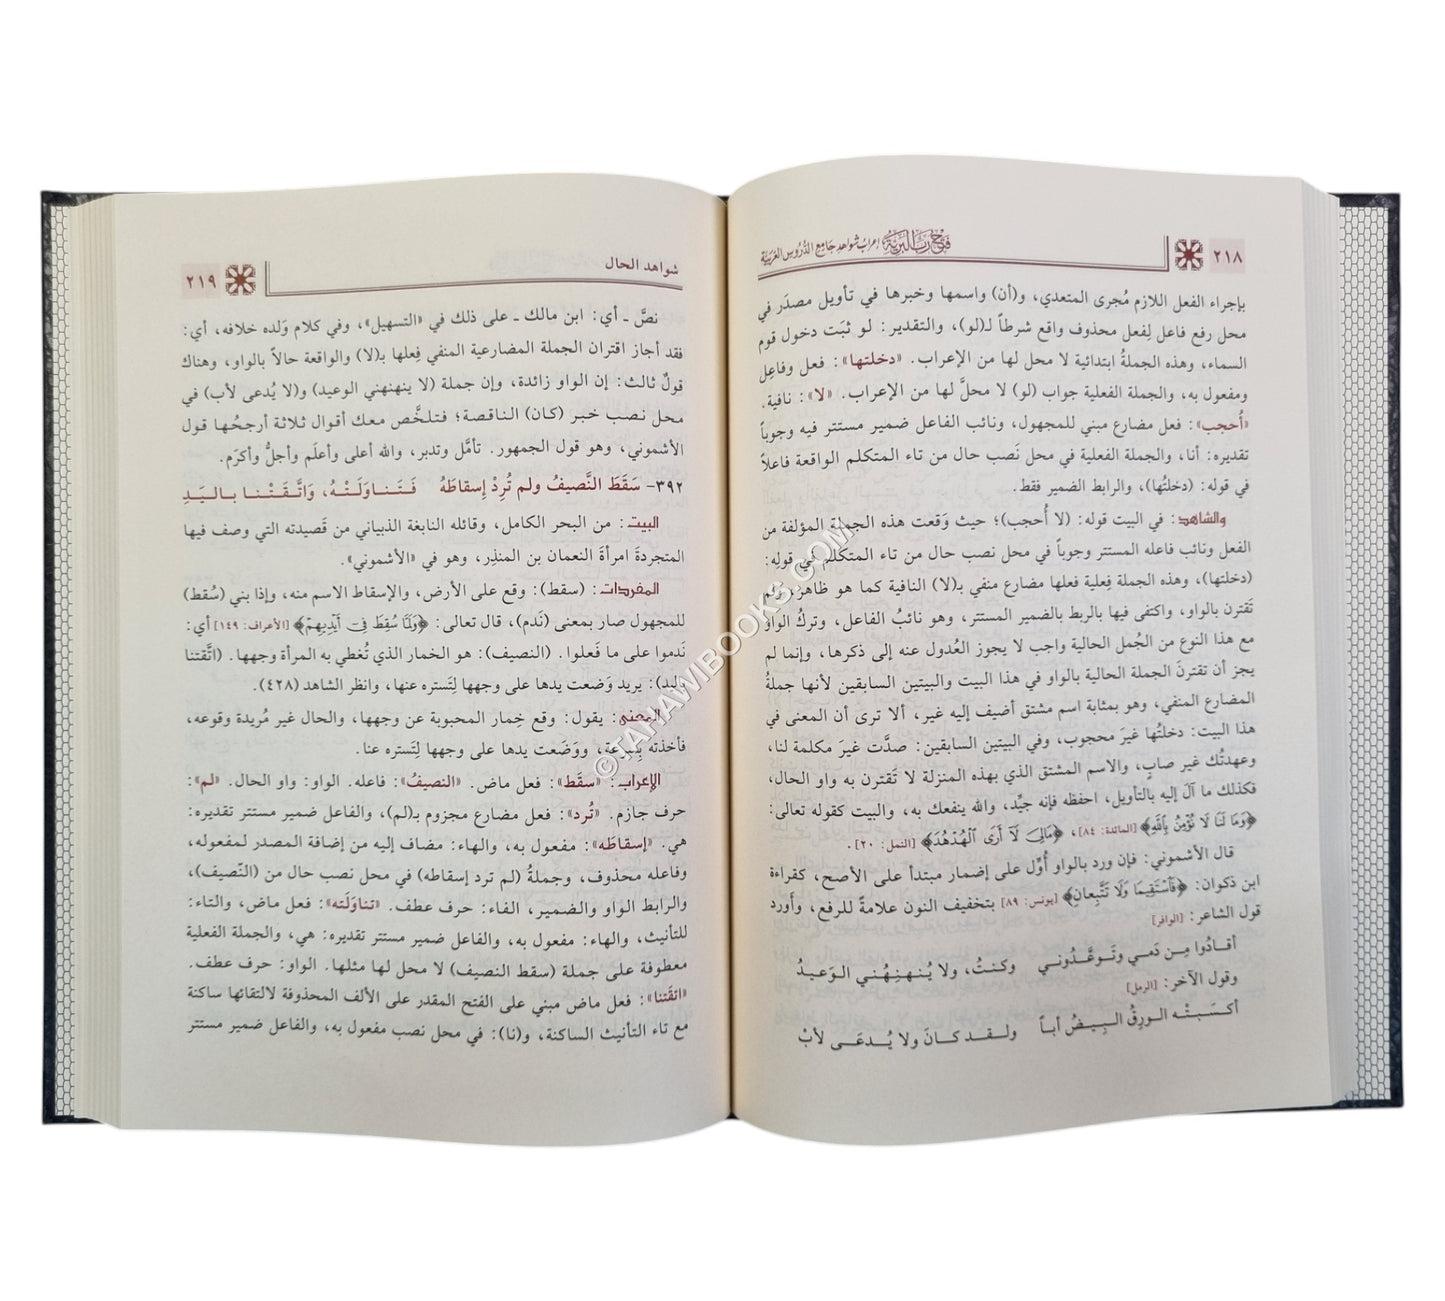 ٢١٨
فتح رب البرية إعراب شواهد جامع الدروس العربية
بإجراء الفعل اللازم مُجرى المتعدي، و(أن) واسمها وخبرها في تأويل مصدَر في
محل رفع فاعل لِفعل محذوف واقع شرطاً لـ(لو)، والتقدير: لو ثبَت دخول قوم
السماء، وهذه الجملةُ ابتدائية لا محل لها من الإعراب. «دخلتها»: فعل وفاعِل
ومفعول به، والجملة الفعلية جواب (لو) لا محلَّ لها من الإعراب. «لا»: نافية.
«أُحجب»: فعل مضارع مبني للمجهول، ونائب الفاعل ضمير مستتر فيه وجوباً
تقديره: أنا، والجملة الفعلية في محل نَصب حال من تاء المتكلم الواقعة فاعلاً
في قوله: (دخلتُها)، والرابط الضمير فقط.
والشاهد: في البيت قوله: (لا أُحجب)؛ حيث وَقعت هذه الجملة المؤلفة من
الفعل ونائب فاعله المستتر وجوباً في محل نصب حال من تاء المتكلم في قولِه:
(دخلتها)، وهذه الجملة فِعلية فعلها مضارع منفي بـ(لا) النافية كما هو ظاهر، ولم
تَقترن بالواو، واكتفى فيها بالربط بالضمير المستتر، وهو نائبُ الفاعل، وتركُ الواو
مع هذا النوع من الجُمل الحالية واجب لا يجوز العُدول عنه إلى ذكرها، وإنما لم
يجز أن تقترنَ الجملة الحالية بالواو في هذا البيت والبيتين السابقين لأنها جملةُ
المضارع المنفي، وهو بمثابة اسم مشتق أضيف إليه غير، ألا ترى أن المعنى في
هذا البيت: دخلتُها غيرَ محجوب، وفي البيتين السابقين: صدَّت غيرَ مكلمة لنا،
وعهدتُك غير صابٍ، والاسم المشتق الذي بهذه المنزلة لا تَقترن به واو الحال،
فكذلك ما آلَ إليه بالتأويل، احفظه فإنه جيِّد، والله ينفعك به، والبيت كقوله تعالى:
﴿وَمَا لَنَا لَا نُؤْمِنُ بِاللَّهِ﴾ [المائدة: ٨٤]، ﴿مَالِىَ لَآ أَرَى ٱلْهُدْهُدَ﴾ [النمل: ٢٠].
قال الأشموني: فإن ورد بالواو أُوِّل على إضمار مبتدأ على الأصح، كقراءة
ابن ذكوان: ﴿فَٱسْتَقِيمَا وَلَا تَتَّبِعانِ﴾ [يونس: ٨٩] بتخفيف النون علامةً للرفع، وأَورد
قول الشاعر: [الوافر]
أقـادُوا مِـن دَمـي وتَـوعَّـدُونـي وكنـتُ، ولا يُنـهنِـهُـني الـوَعـيـدُ
وقول الآخر: [الرمل]
أكـسَـبـتْـه الـورِقُ الـبِـيـضُ أبـاً ولـقـد كـانَ ولا يُـدعَـى لأبْ
شواهد الحال
٢١٩
نصَّ ـ أي: ابن مالك ـ على ذلك في «التسهيل»، وفي كلام وَلده خلافه، أي:
فقد أجاز اقتران الجملة المضارعية المنفي فِعلها بـ(لا) والواقعة حالاً بالواو، وهناك
قولٌ ثالث: إن الواو زائدة، وإن جملة (لا ينهنهني الوعيد) و(لا يُدعى لأب) في
محل نصب خبر (كان) الناقصة؛ فتلخَّص معك أقوال ثلاثة أرجحُها قول
الأشموني، وهو قول الجمهور. تأمَّل وتدبر، والله أعلى وأعلَم وأجلُّ وأكرَم.
٣٩٢- سَقَطَ النَّصيفُ ولم تُرِدْ إسقاطَهُ فَـتَـنـاوَلَـتْـهُ، وَاتَّـقَـتْـنـا بـالـيَـدِ
البيت: من البحر الكامل، وقائله النابغة الذبياني من قَصيدته التي وصف فيها
المتجردةَ امرأةَ النعمان بن المنذِر، وهو في «الأشموني».
المفردات: (سقط): وقع على الأرض، والإسقاط الاسم منه، وإذا بني (سُقط)
للمجهول صار بمعنى (نَدم)، قال تعالى: ﴿وَلَمَّا سُقِطَ فِىٓ أَيْدِيهِمْ﴾ [الأعراف: ١٤٩] أي:
نَدموا على ما فَعلوا. (النصيف): هو الخمار الذي تُغطي به المرأة وجهها. (اتَّقتنا
باليد): يريد وَضعت يدها على وجهها لِتَستره عنها، وانظر الشاهد (٤٢٨).
المعنى: يقول: وقع خِمار المحبوبة عن وجهها، والحال غير مُريدة وقوعه،
فأخذته بِسُرعة، ووَضَعت يدها على وجهها لتِستره عنا.
الإعراب: «سقَط»: فعل ماض. «النصيفُ»: فاعله. الواو: واو الحال. «لم»:
حرف جازم. «تُرد»: فعل مضارع مجزوم بـ(لم)، والفاعل ضمير مستتر تقديره:
هي. «إسقاطَه»: مفعول به، والهاء: مضاف إليه من إضافة المصدر لمفعوله،
وفاعله محذوف، وجملةُ (لم ترد إسقاطه) في محل نصب حال من (النّصيف)،
والرابط الواو والضمير، الفاء: حرف عطف. «تناوَلَته»: فعل ماض، والتاء:
للتأنيث، والهاء: مفعول به، والفاعل ضمير مستتر تقديره: هي، والجملة الفعلية
معطوفة على جملة (سقط النصيف) لا محل لها مثلها. الواو: حرف عطف.
«اتقَتنا»: فعل ماض مبني على الفتح المقدر على الألف المحذوفة لالتقائها ساكنة
مع تاء التأنيث الساكنة، و(نا): في محل نصب مفعول به، والفاعل ضمير مستتر
©TAHAWIBOOKS.COM